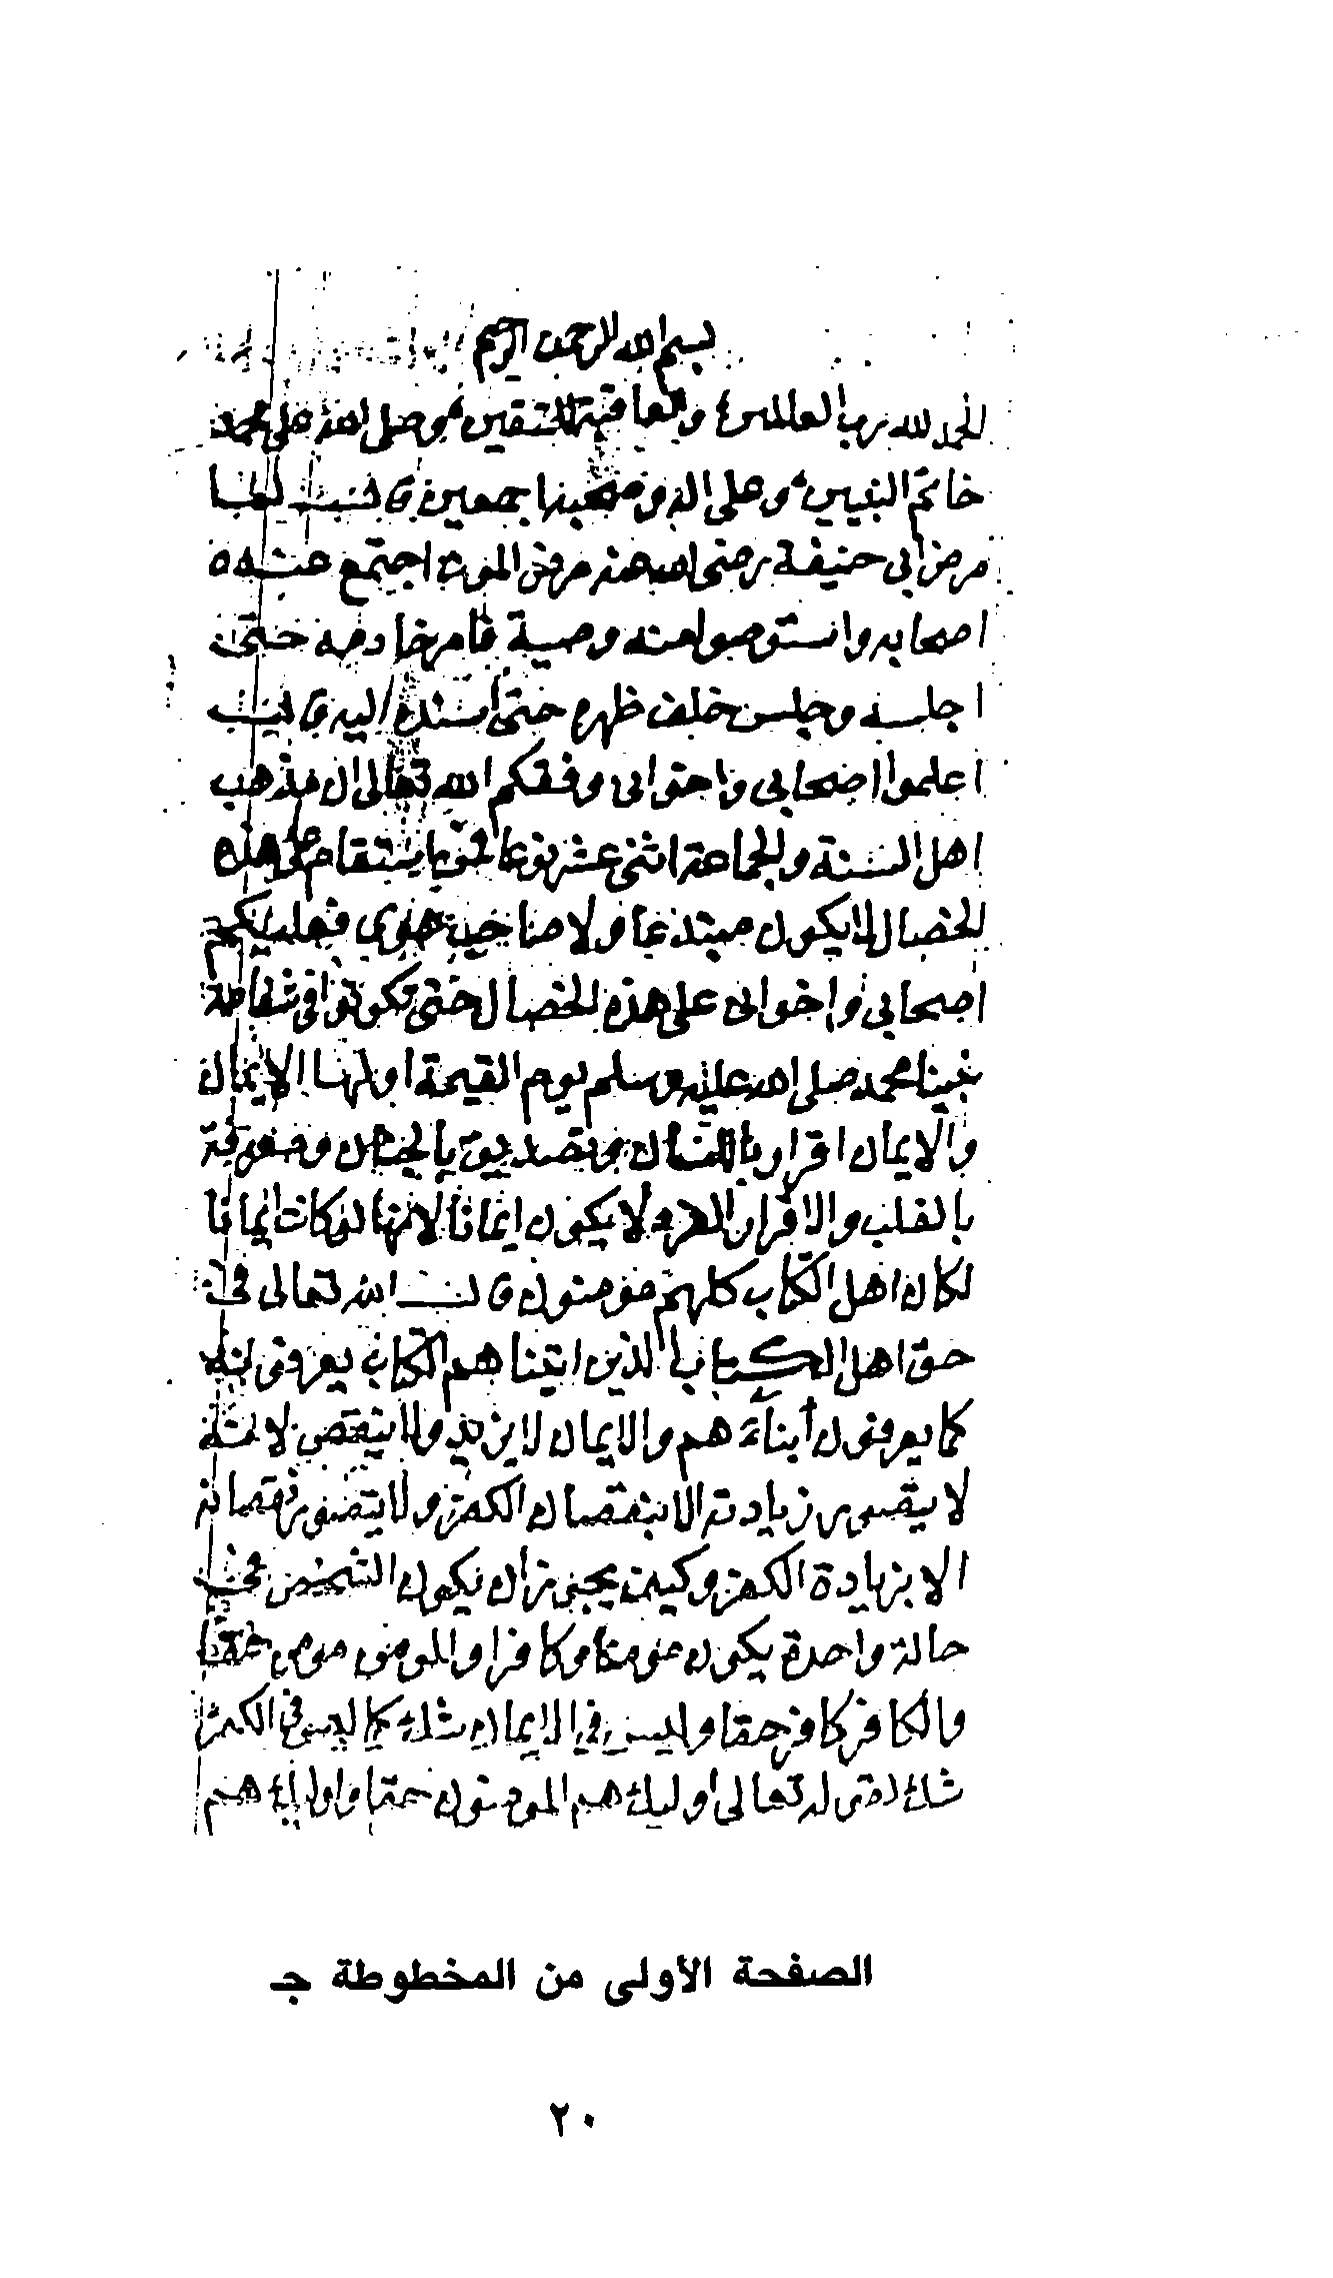 بسم الله الرحمن الرحيم
الحمد لله رب العالمين والعاقبة للمتقين وصلى الله على محمد
خاتم النبيين وعلى اله وصحبه اجمعين قال لما
مرض ابي حنيفة رضى الله عنه مرض الموت اجتمع عنده
اصحابه واستوصوا منه وصية فامر خادمه حتى
اجلسه وجلس خلف ظهره حتى استند اليه قال
اعلموا اصحابى واخوانى وفقكم الله تعالى ان مذهب
اهل السنة والجماعة اثنى عشر نوعا فمن استقام على هذه
الخصال لا يكون مبتدعا ولا صاحب هوى فعليكم
اصحابى واخوانى على هذه الخصال حتى تكونوا فى شفاعة
نبينا محمد صلى الله عليه وسلم يوم القيمة اولها الايمان
والايمان اقرار باللسان وتصديق بالجنان ومعرفة
بالقلب والاقرار لا يكون ايمانا لانها لو كانت ايمانا
لكان اهل الكتاب كلهم مومنون قال الله تعالى فى
حق اهل الكتاب الذين اتيناهم الكتاب يعرفونه
كما يعرفون أبناءهم والايمان لا يزيد ولا ينقص لانه
لا يتصور زيادته الا بنقصان الكفر ولا يتصور نقصانه
الا بزيادة الكفر وكيف يجوز أن يكون الشخص فى
حالة واحدة يكون مومنا وكافرا والمومن مومن حقا
والكافر كافر حقا وليس فى الايمان شك كما ليس فى الكفر
شك لقوله تعالى اوليك هم المومنون حقا واوليك هم
الصفحة الأولى من المخطوطة جـ
٢٠